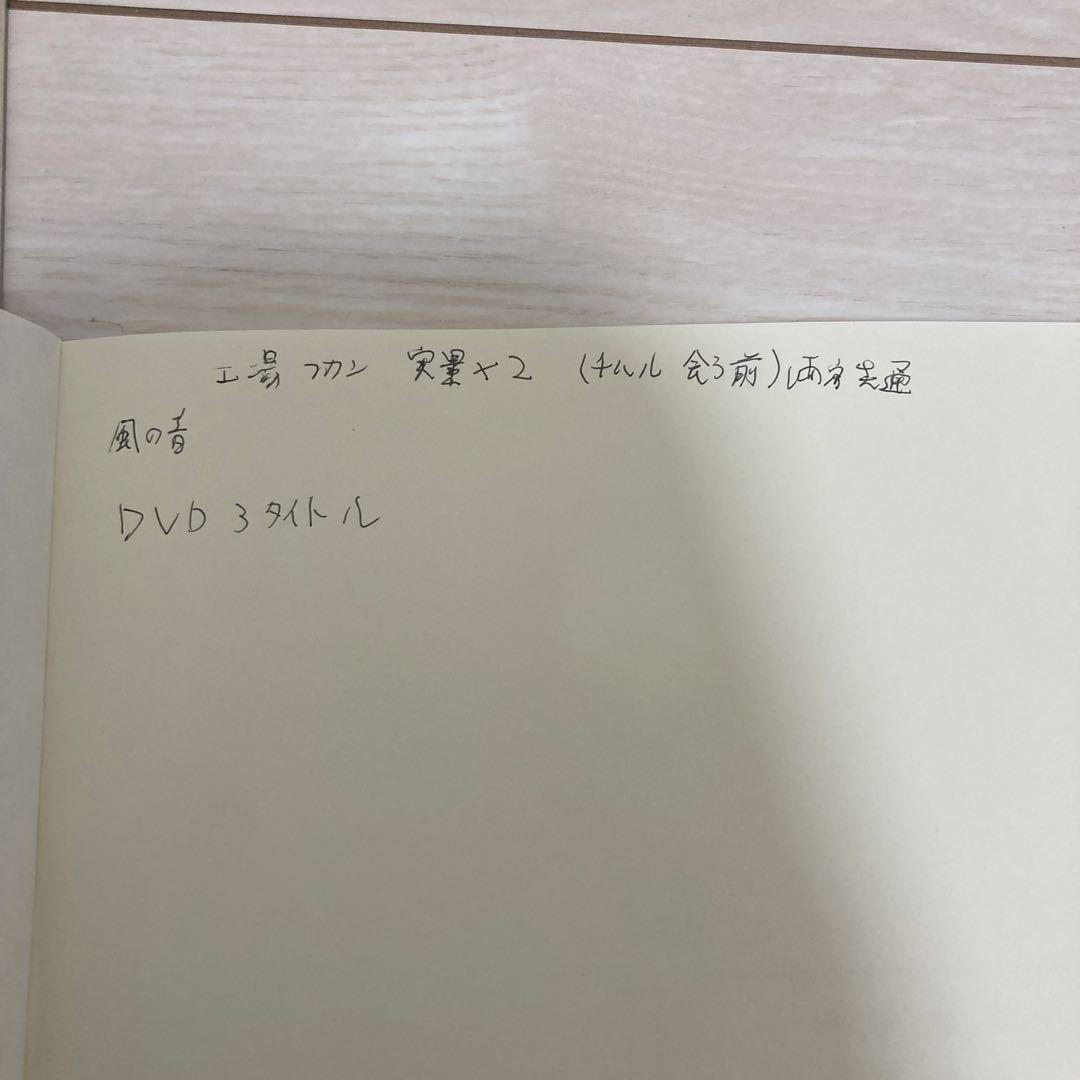 工場 フカン 実景×2 (チルル 会う前) 両方共通
風の音
DVD 3タイトル